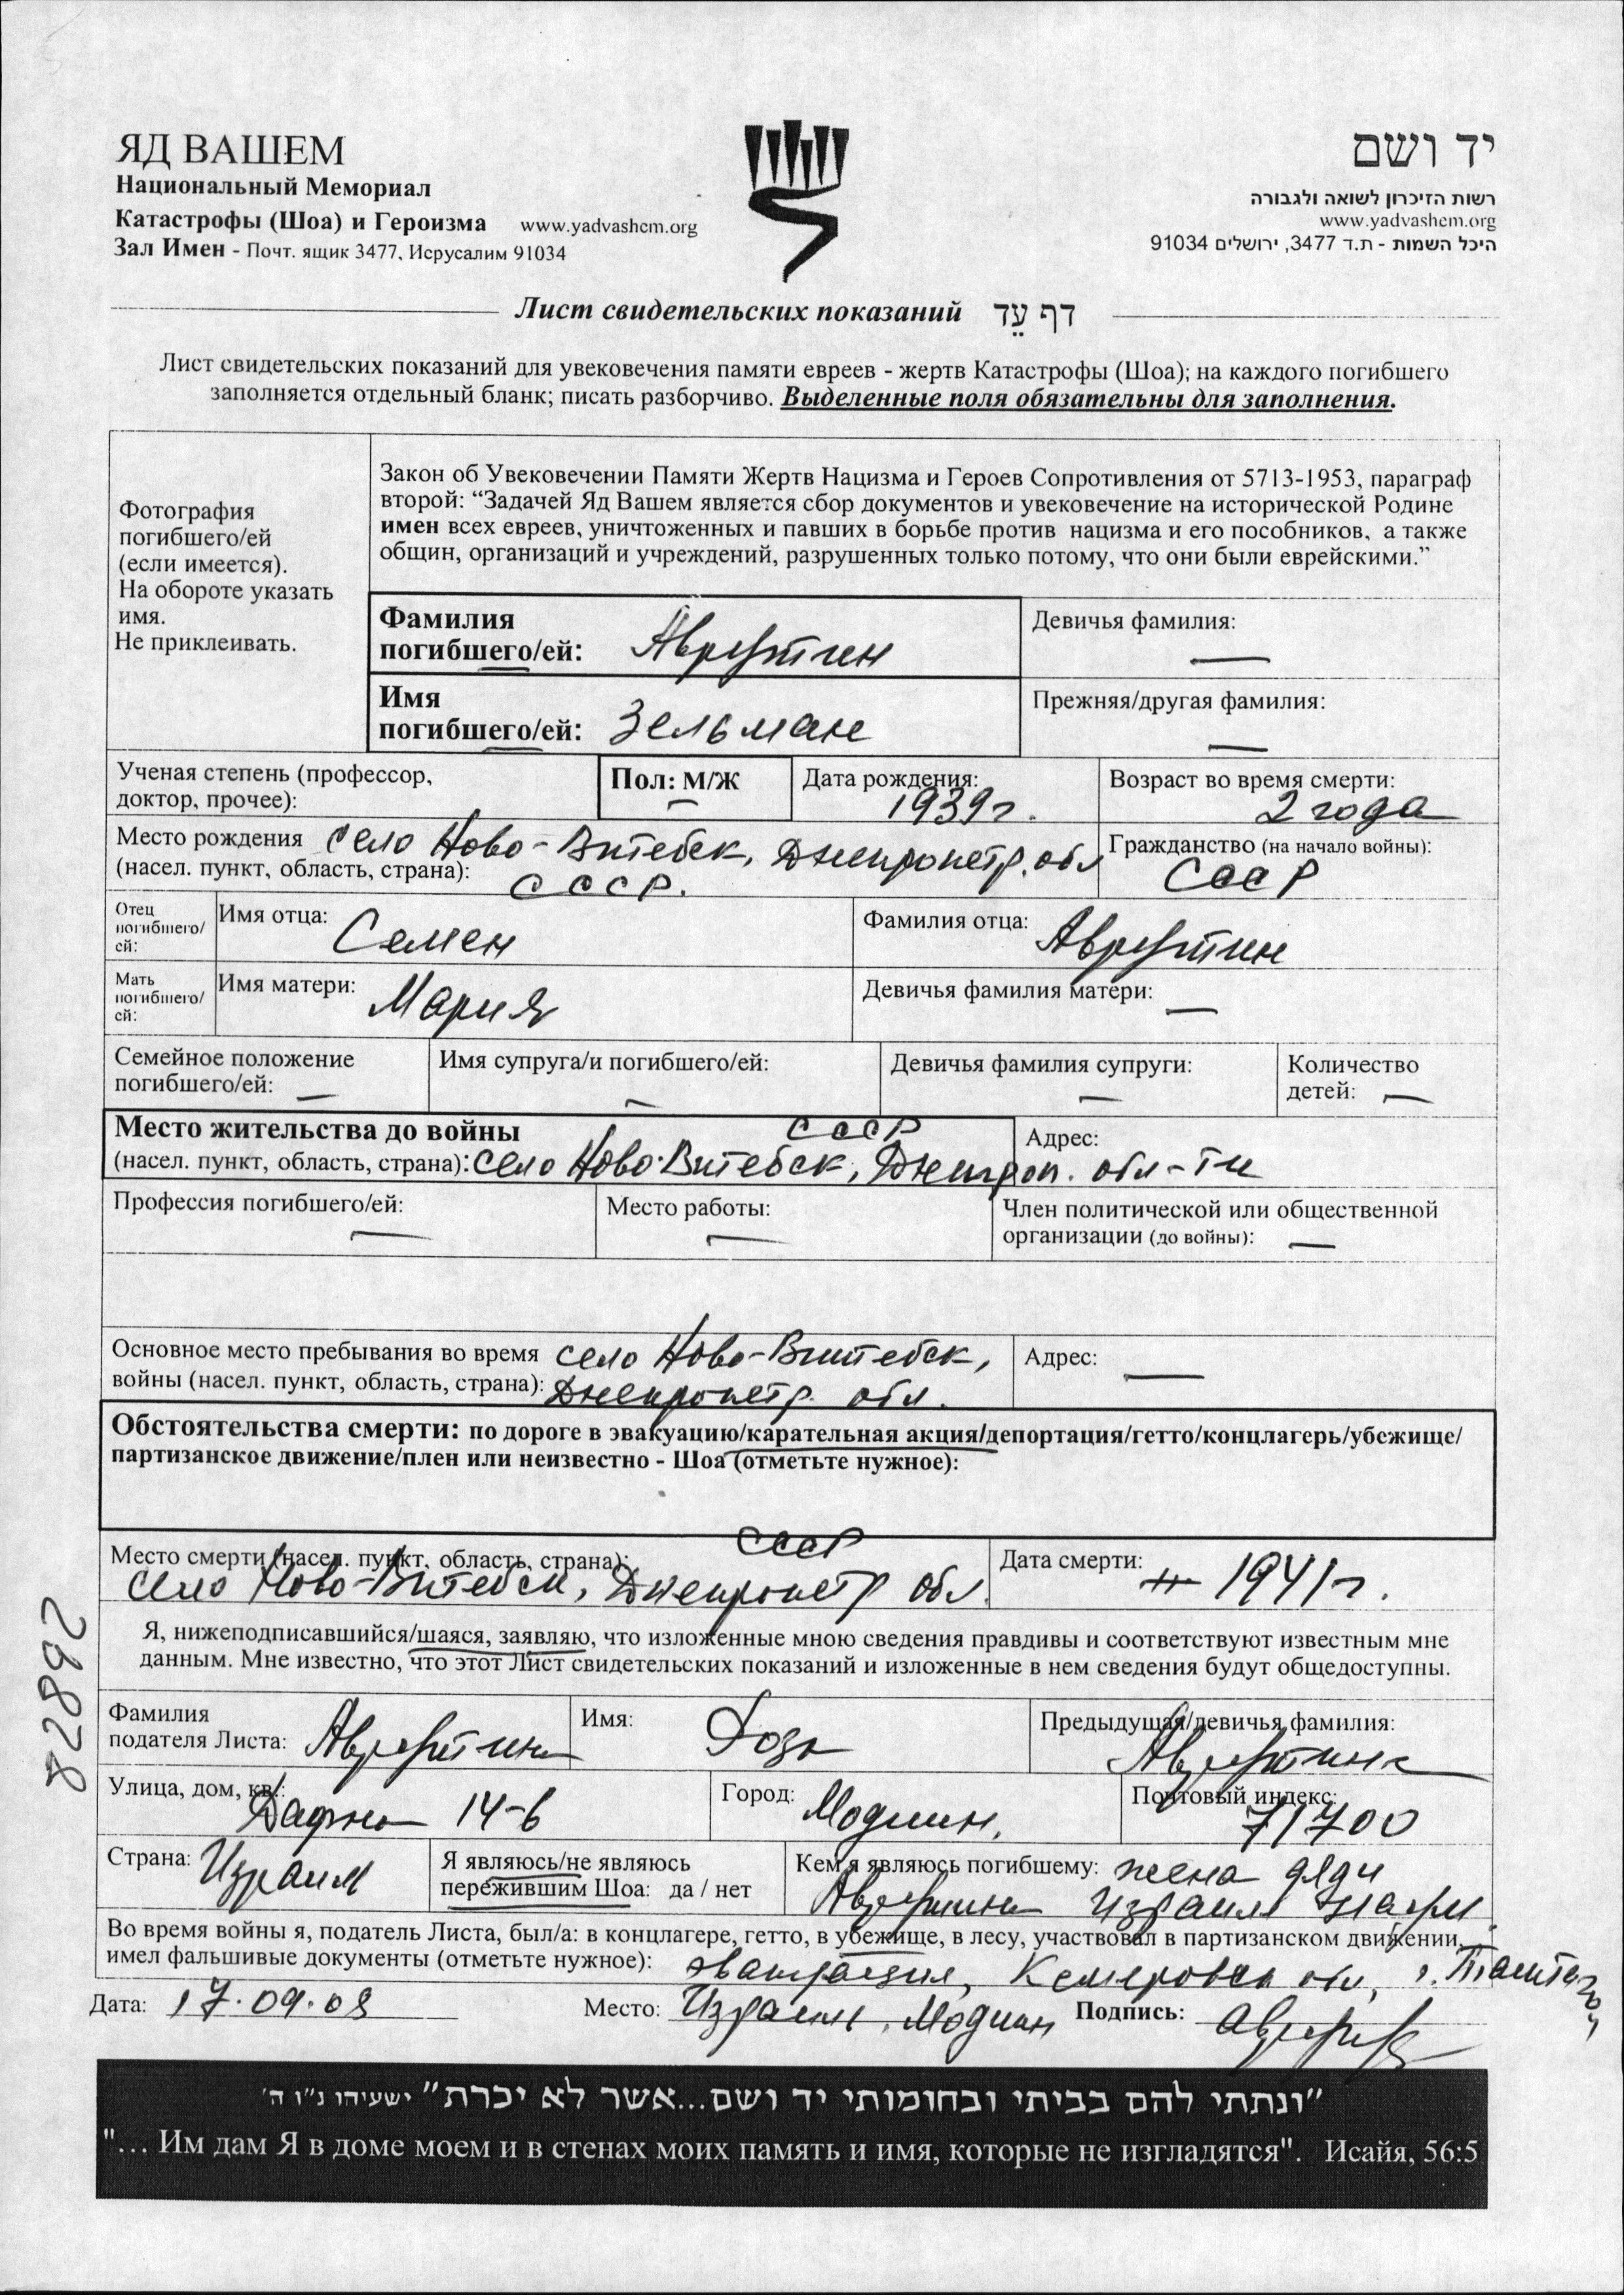 ЯД ВАШЕМ
Национальный Мемориал
Катастрофы (Шоа) и Героизма www.yadvashem.org
Зал Имен - Почт. ящик 3477, Иерусалим 91034
יד ושם
רשות הזיכרון לשואה ולגבורה
www.yadvashem.org
היכל השמות - ת.ד 3477, ירושלים 91034
Лист свидетельских показаний דף עֵד
Лист свидетельских показаний для увековечения памяти евреев - жертв Катастрофы (Шоа); на каждого погибшего
заполняется отдельный бланк; писать разборчиво. Выделенные поля обязательны для заполнения.
Фотография
погибшего/ей
(если имеется).
На обороте указать
имя.
Не приклеивать.
Закон об Увековечении Памяти Жертв Нацизма и Героев Сопротивления от 5713-1953, параграф
второй: “Задачей Яд Вашем является сбор документов и увековечение на исторической Родине
имен всех евреев, уничтоженных и павших в борьбе против нацизма и его пособников, а также
общин, организаций и учреждений, разрушенных только потому, что они были еврейскими.”
Фамилия
погибшего/ей: Аврутин
Девичья фамилия: —
Имя
погибшего/ей: Зельман
Прежняя/другая фамилия: —
Ученая степень (профессор,
доктор, прочее):
Пол: М/Ж
Дата рождения: 1939г.
Возраст во время смерти: 2 года
Место рождения село Ново-Витебск, Днепропетр. обл
(насел. пункт, область, страна): СССР.
Гражданство (на начало войны):
СССР
Отец
погибшего/
ей:
Имя отца: Семен
Фамилия отца: Аврутин
Мать
погибшего/
ей:
Имя матери: Мария
Девичья фамилия матери: —
Семейное положение
погибшего/ей: —
Имя супруга/и погибшего/ей: —
Девичья фамилия супруги: —
Количество
детей: —
Место жительства до войны СССР
(насел. пункт, область, страна): село Ново-Витебск, Днепроп. обл-ти
Адрес:
Профессия погибшего/ей: —
Место работы: —
Член политической или общественной
организации (до войны): —
Основное место пребывания во время село Ново-Витебск,
войны (насел. пункт, область, страна): Днепропетр. обл.
Адрес: —
Обстоятельства смерти: по дороге в эвакуацию/карательная акция/депортация/гетто/концлагерь/убежище/
партизанское движение/плен или неизвестно - Шоа (отметьте нужное):
Место смерти (насел. пункт, область, страна): СССР
село Ново-Витебск, Днепропетр обл.
Дата смерти: 1941г.
Я, нижеподписавшийся/шаяся, заявляю, что изложенные мною сведения правдивы и соответствуют известным мне
данным. Мне известно, что этот Лист свидетельских показаний и изложенные в нем сведения будут общедоступны.
Фамилия
подателя Листа: Аврутина
Имя: Роза
Предыдущая/девичья фамилия:
Аврутина
Улица, дом, кв.: Дафна 14-6
Город: Модиин.
Почтовый индекс:
71700
Страна: Израиль
Я являюсь/не являюсь
пережившим Шоа: да / нет
Кем я являюсь погибшему: жена дяди
Израиля
Во время войны я, податель Листа, был/а: в концлагере, гетто, в убежище, в лесу, участвовал в партизанском движении,
имел фальшивые документы (отметьте нужное): эвакуация, Кемеровск обл, г. Таштагол
Дата: 17.09.08 Место: Израиль, Модиин Подпись:
26828
"ונתתי להם בביתי ובחומותי יד ושם...אשר לא יכרת" ישעיהו נ"ו ה'
"... Им дам Я в доме моем и в стенах моих память и имя, которые не изгладятся". Исайя, 56:5